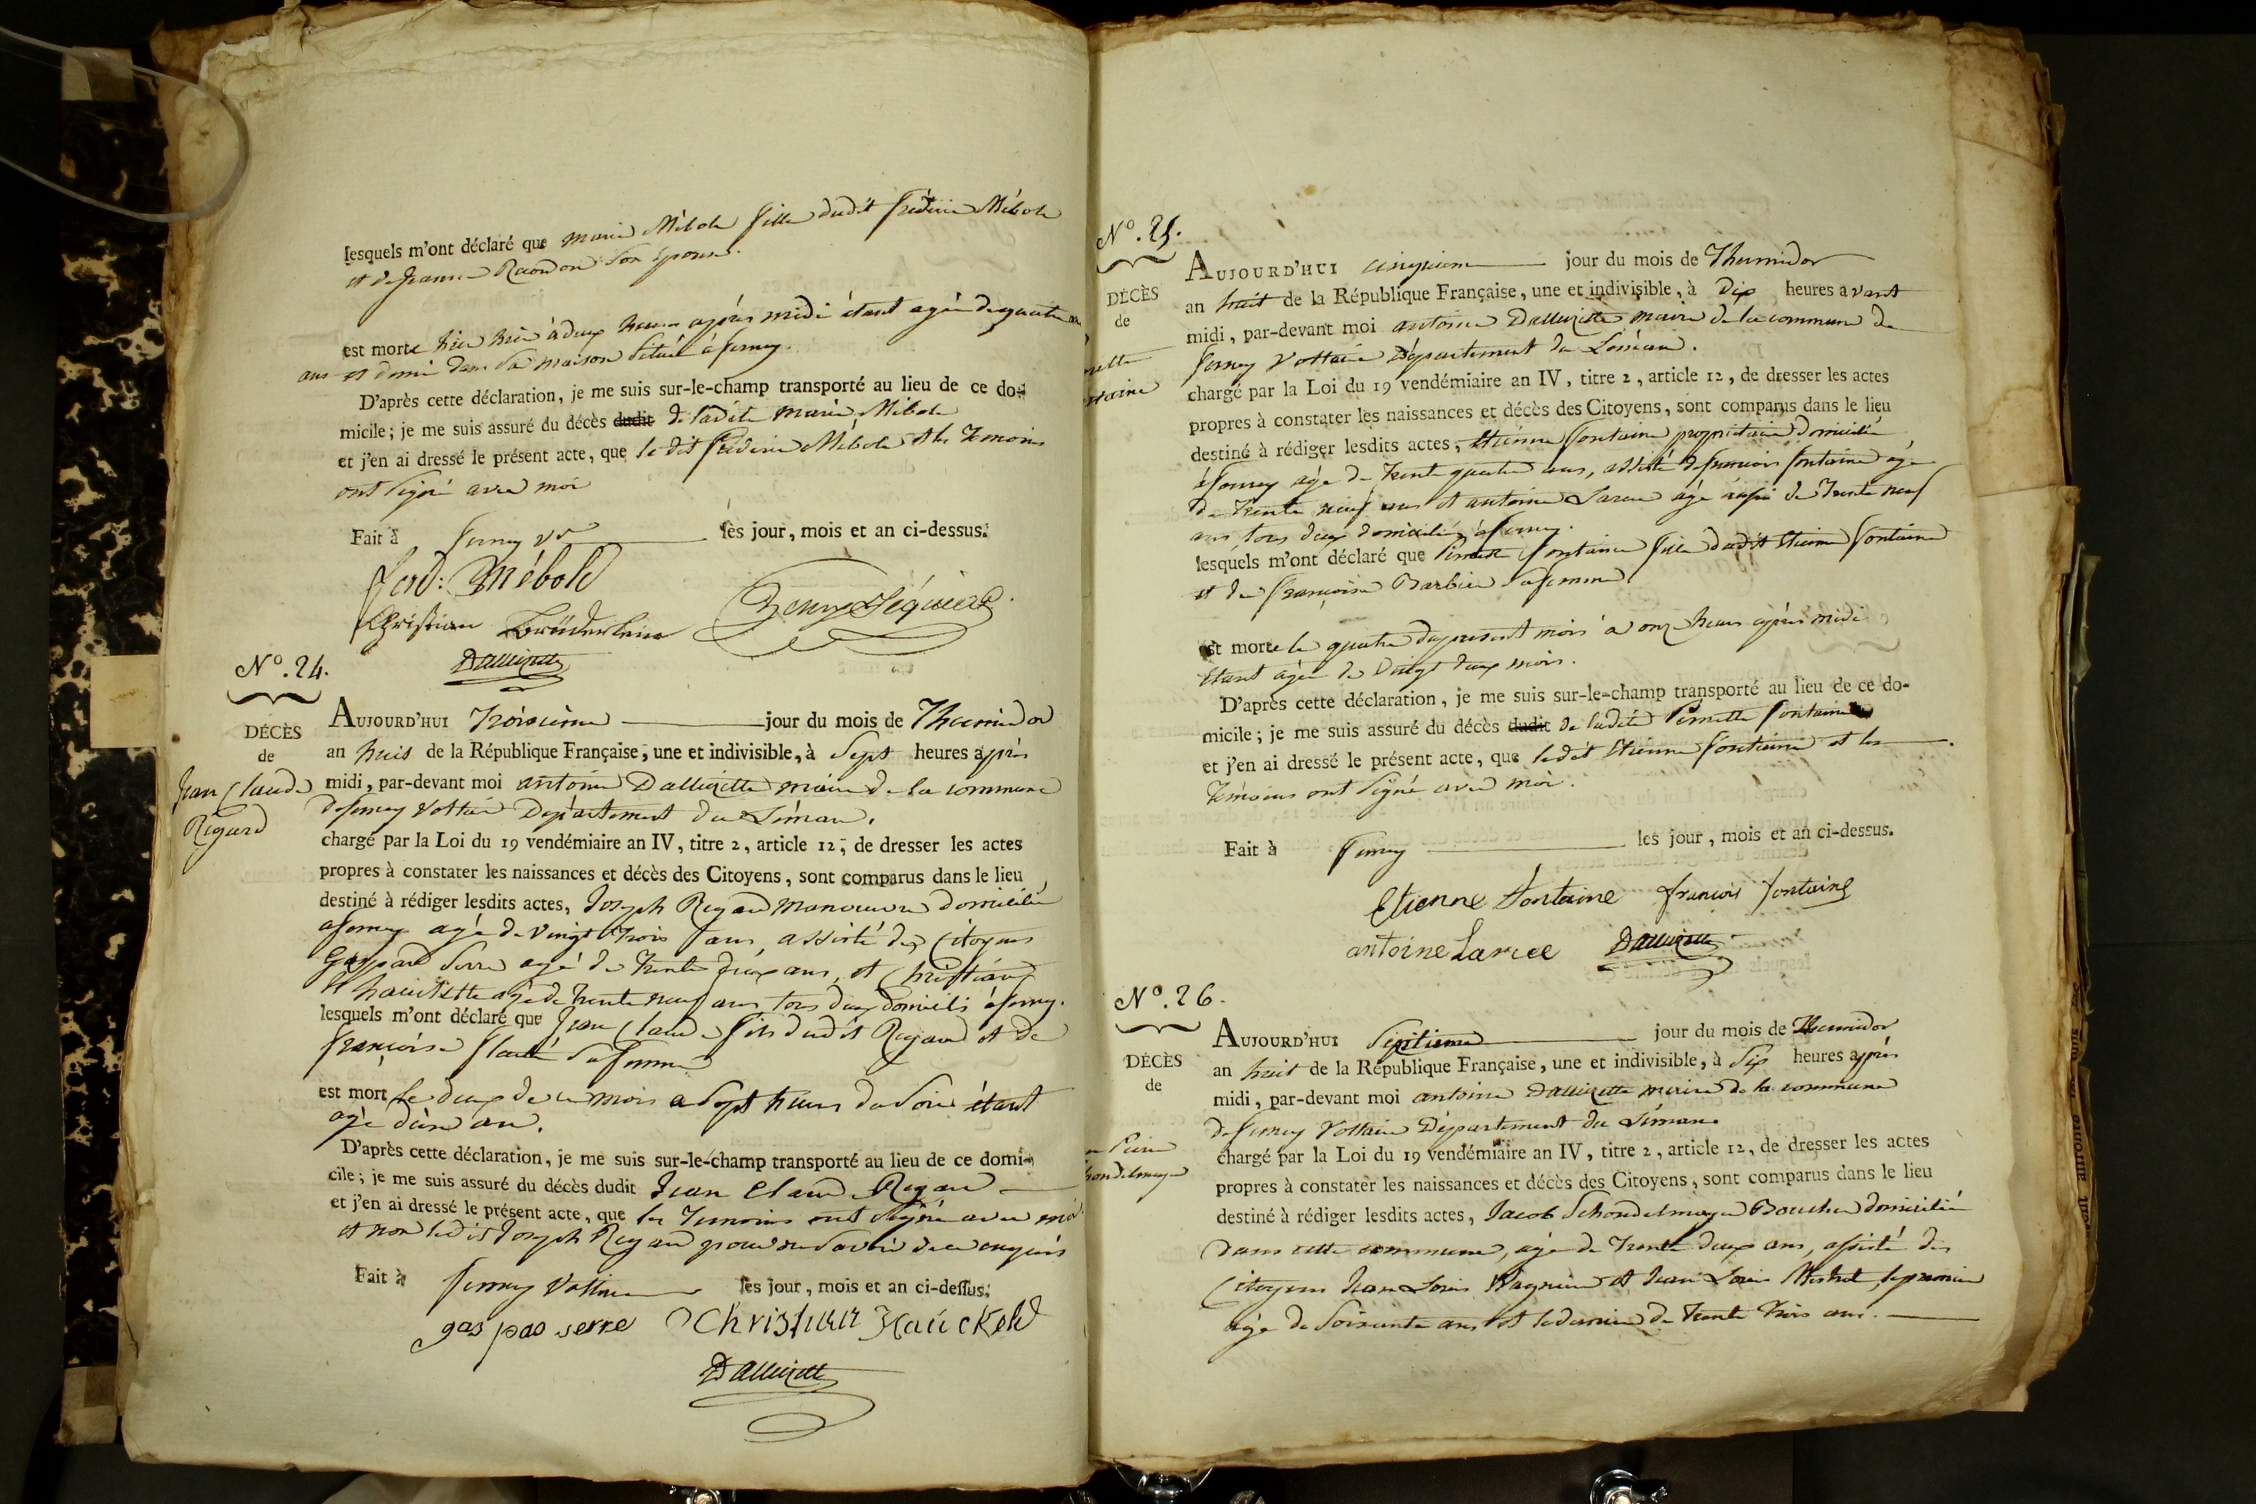 lesquels m'ont déclaré que marie Mébold fille dudit fréderic Mébold
et de Jeanne son épouse.
est morte hier à deux heures après midi étant agée de quatre
ans et demi dans sa maison située à ferney.
D'après cette déclaration, je me suis sur-le-champ transporté au lieu de ce do-
micile; je me suis assuré du décès dudit de ladite marie Mébold
et j'en ai dressé le présent acte, que le dit fréderic Mébold et les temoins
ont signé avec moi
Fait à ferney les jour, mois et an ci-dessus.
ferd: Mébold
Christian Brüderlein
Dallizette
N°. 24.
DÉCÈS
de
Jean Claude
Regard
AUJOURD'HUI troisième jour du mois de Thermidor
an huit de la République Française, une et indivisible, à sept heures après
midi, par-devant moi antoine Dallizette maire de la commune
de ferney Voltaire Département du Léman.
chargé par la Loi du 19 vendémiaire an IV, titre 2, article 12, de dresser les actes
propres à constater les naissances et décès des Citoyens, sont comparus dans le lieu
destiné à rédiger lesdits actes, Joseph Regard manoeuvre domicilié
a ferney agé de vingt trois ans, assisté des Citoyens
Gaspard Serre agé de trente deux ans, et Christian
agé de trente neuf ans tous deux domiciliés à ferney.
lesquels m'ont déclaré que Jean Claude fils dudit Regard et de
françoise sa femme
est mort le deux de ce mois a sept heures du soir étant
agé d'un an.
D'après cette déclaration, je me suis sur-le-champ transporté au lieu de ce domi-
cile; je me suis assuré du décès dudit Jean Claude Regard
et j'en ai dressé le présent acte, que les temoins ont signé avec moi
et non ledit Joseph Regard pour ne savoir de ce enquis
Fait à ferney Voltaire les jour, mois et an ci-dessus.
gas pao serre Christian Hauckold
Dallizette
N°. 25.
DÉCÈS
de
AUJOURD'HUI cinquieme jour du mois de Thermidor
an huit de la République Française, une et indivisible, à dix heures avant
midi, par-devant moi antoine Dallizette maire de la commune de
ferney Voltaire Département du Léman.
chargé par la Loi du 19 vendémiaire an IV, titre 2, article 12, de dresser les actes
propres à constater les naissances et décès des Citoyens, sont comparus dans le lieu
destiné à rédiger lesdits actes, Etienne fontaine proprietaire domicilié
à ferney agé de trente quatre ans, assisté de francois fontaine agé
de trente neuf ans et antoine Larue agé aussi de trente neuf
ans tous deux domiciliés à ferney.
lesquels m'ont déclaré que Pernette fontaine fille dudit Etienne fontaine
et de françoise Barbier sa femme
est morte le quatre du present mois à onze heures après midi
étant agée de vingt deux mois.
D'après cette déclaration, je me suis sur-le-champ transporté au lieu de ce do-
micile; je me suis assuré du décès dudit de ladite Pernette fontaine
et j'en ai dressé le présent acte, que ledit Etienne fontaine et les
témoins ont signé avec moi.
Fait à ferney les jour, mois et an ci-dessus.
Etienne fontaine francois fontaine
antoine Larue Dallizette
N°. 26.
DÉCÈS
de
AUJOURD'HUI septieme jour du mois de Thermidor
an huit de la République Française, une et indivisible, à six heures après
midi, par-devant moi antoine Dallizette maire de la commune
de ferney Voltaire Département du Léman.
chargé par la Loi du 19 vendémiaire an IV, titre 2, article 12, de dresser les actes
propres à constater les naissances et décès des Citoyens, sont comparus dans le lieu
destiné à rédiger lesdits actes, Jacob Schondelmayer Boucher domicilié
dans cette commune, agé de trente deux ans, assisté des
Citoyens Jean Louis Wagnier et Jean Louis le premier
agé de soixante ans et le dernier de trente trois ans.